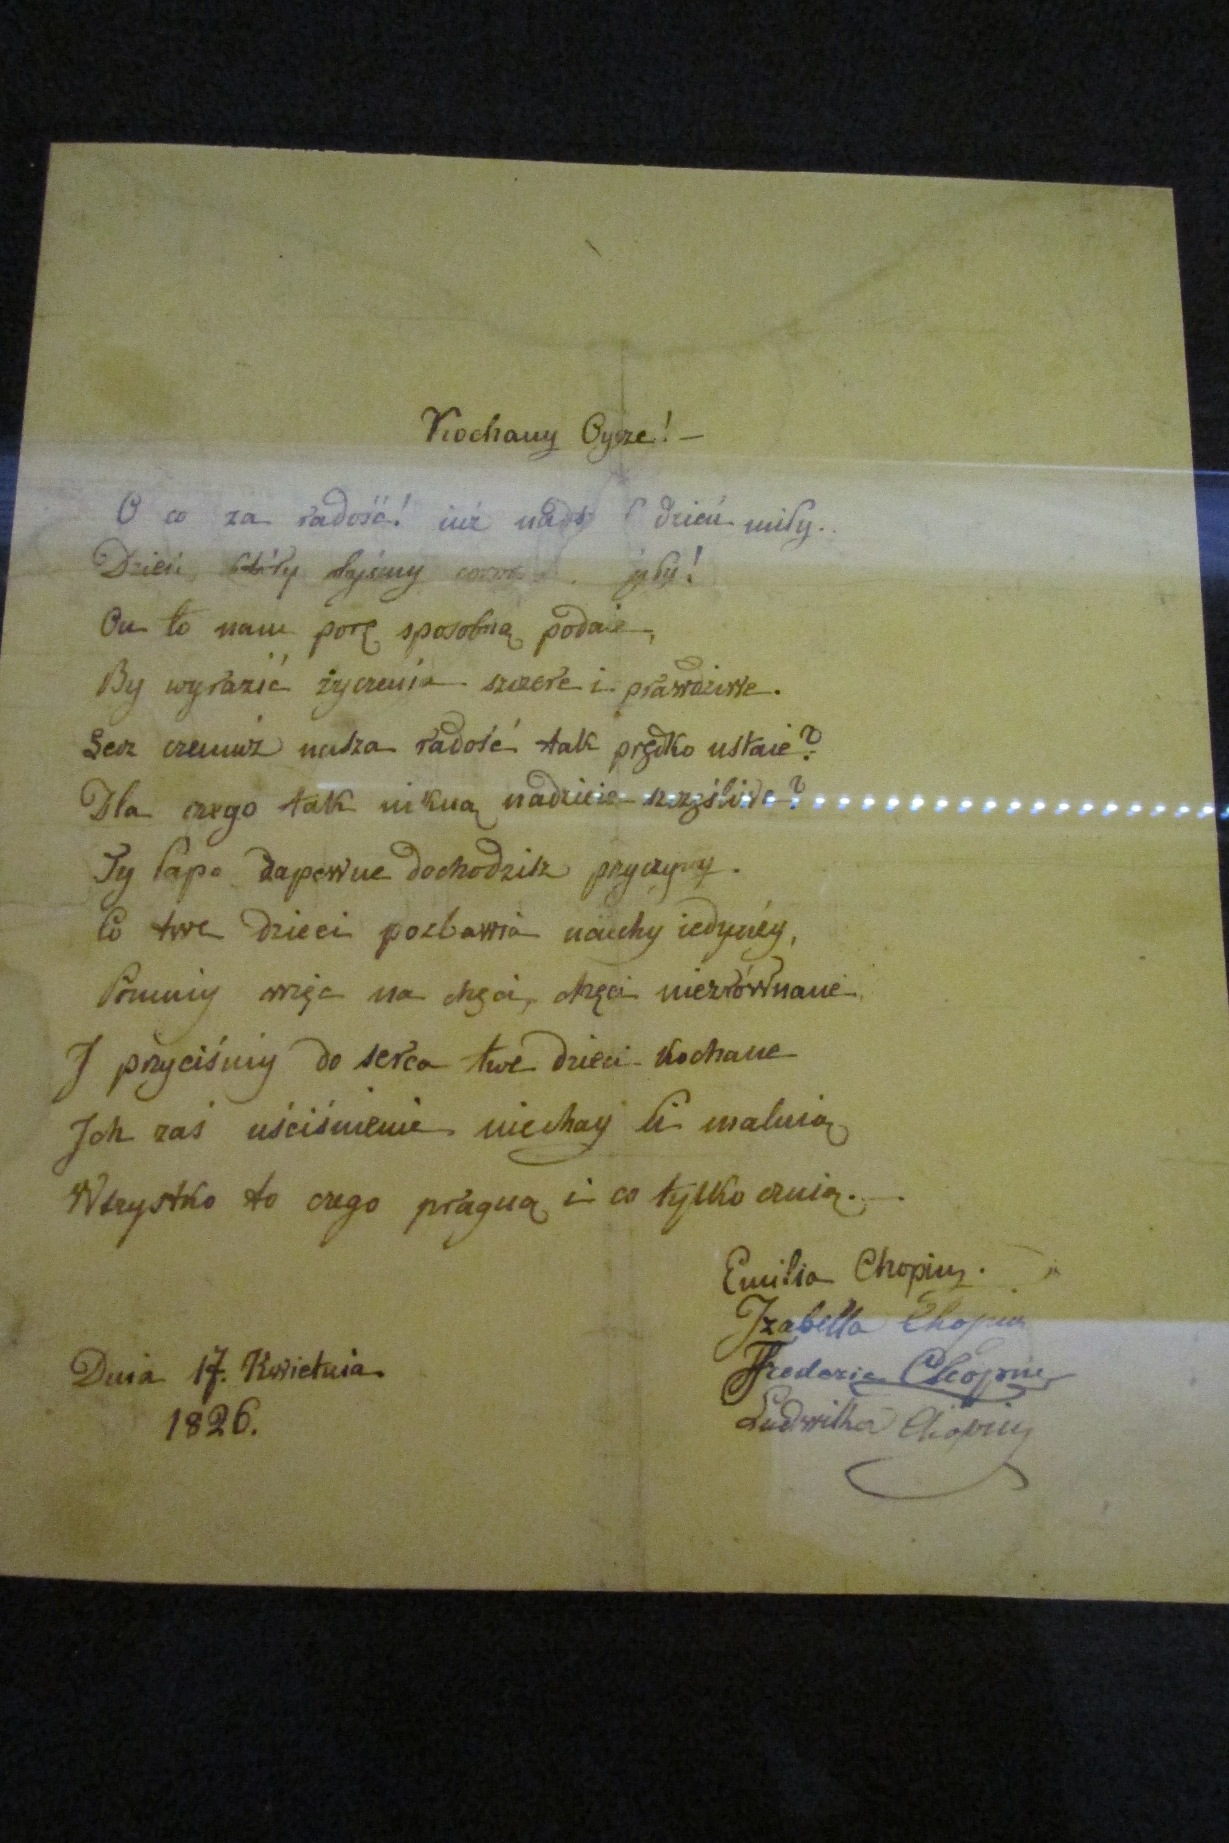 Kochany Oycze! —
O co za radość! iuż dzień miły.
Dzień, którybyśmy
On to nam porę sposobną podaie,
By wyrazić życzenia szczere i prawdziwe.
Lecz czemuż nasza radość tak prędko ustaie?
Dla czego tak nikną nadzieie szczęśliwe?
Ty Papo zapewne dochodzisz przyczyny.
Co twe dzieci pozbawia iedynéy,
Pomniy więc na chęci, chęci niezrównane
I przyciśniy do serca twe dzieci kochane
Ich zaś uściśnienie niechay Ci maluią
Wszystko to czego pragną i co tylko czuią.—
Emilia Chopin.
Izabella Chopin
Dnia 17. Kwietnia
Frederic Chopin
1826.
Ludwika Chopin